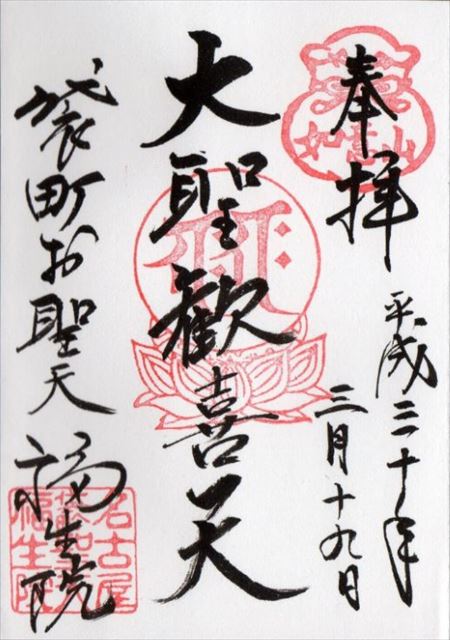 奉拝
平成三十年
三月十九日
大聖歓喜天
袋町お聖天
福生院
如意山
名古屋
袋町聖天
福生院